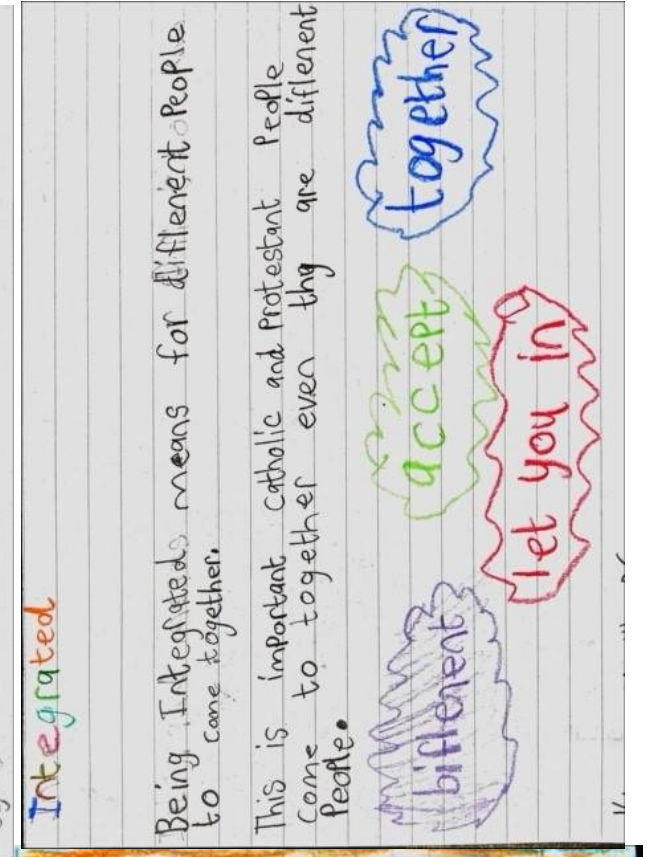 Integrated
Being Integrated means for diflenent People
to come together.
This is important catholic and Protestant People
Come to together even thy are diflenent
People.
biflenent
accept
together
let you in